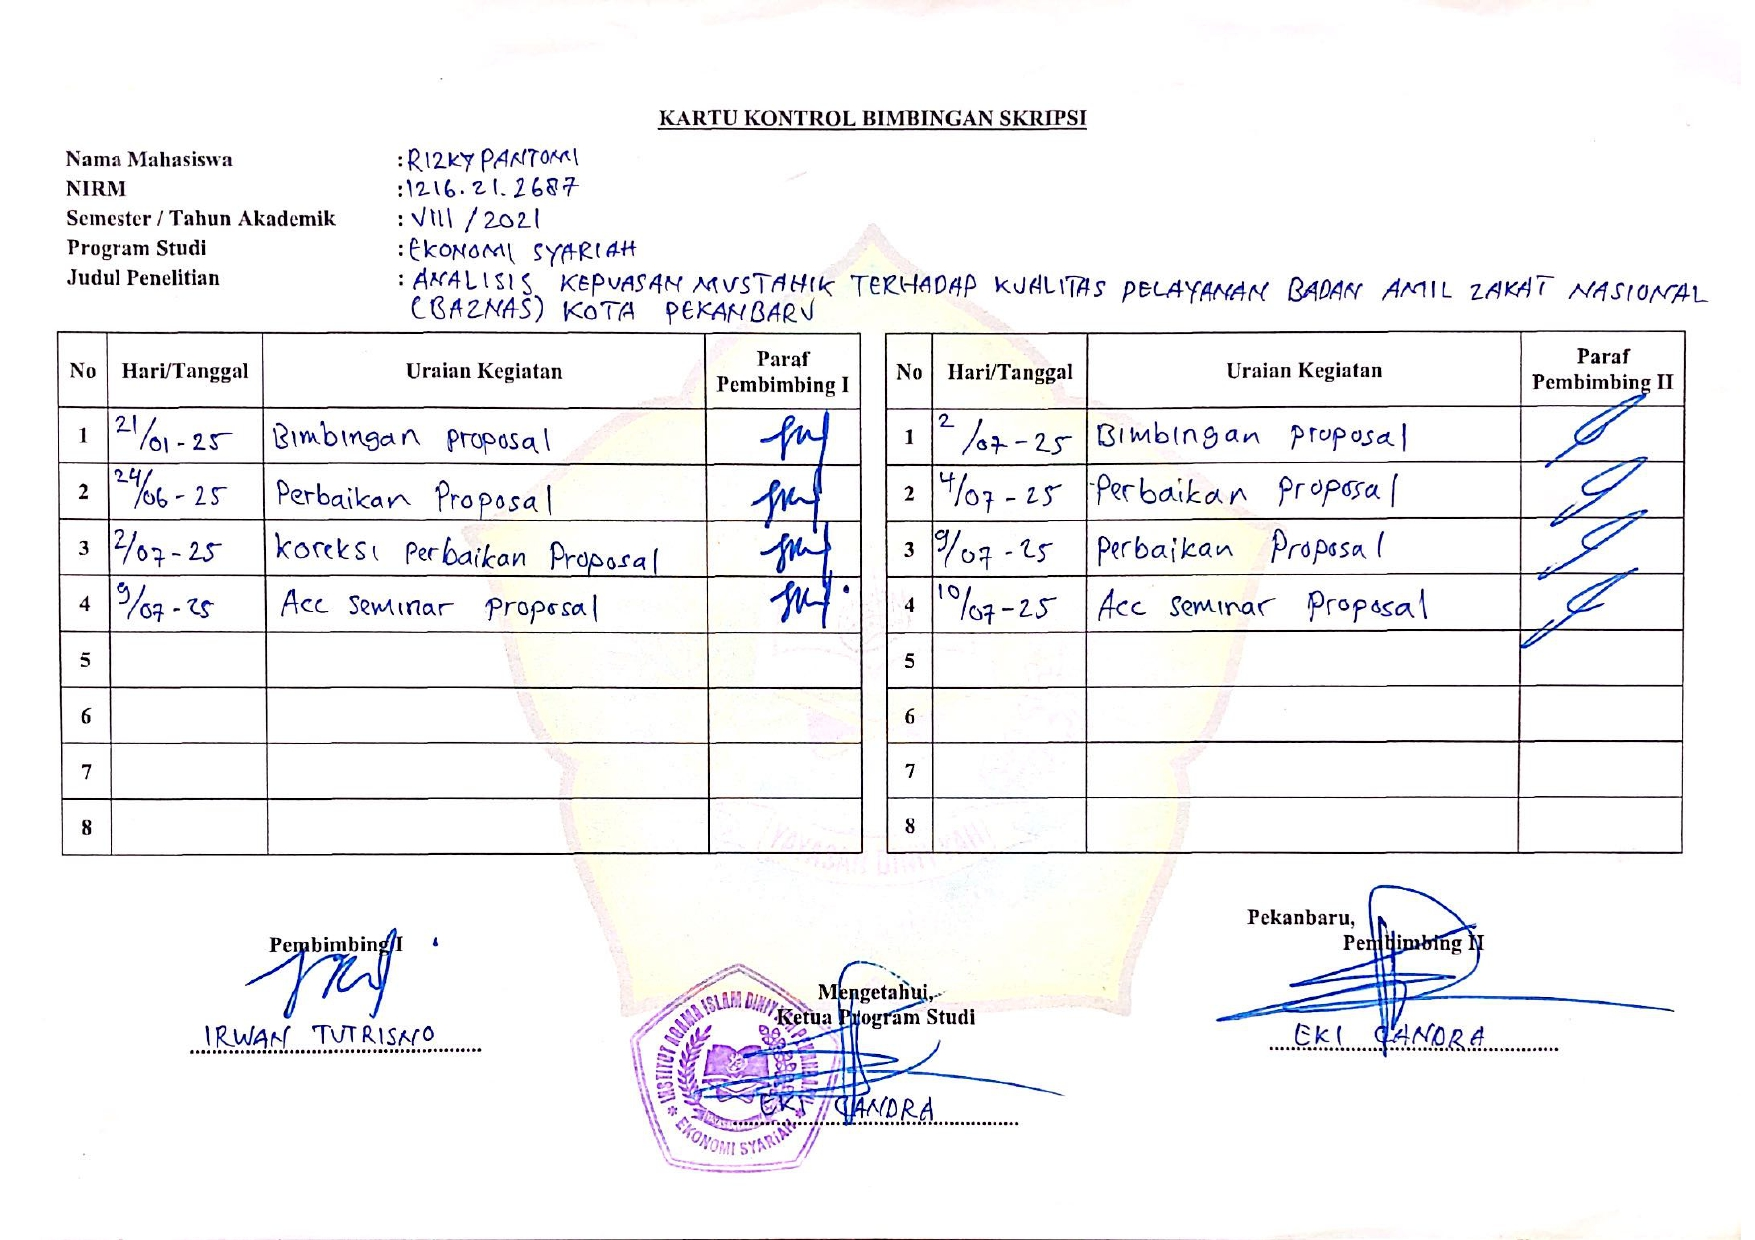 KARTU KONTROL BIMBINGAN SKRIPSI
Nama Mahasiswa : RIZKY PANTOMI
NIRM : 1216.21.2687
Semester / Tahun Akademik : VIII / 2021
Program Studi : EKONOMI SYARIAH
Judul Penelitian : ANALISIS KEPUASAN MUSTAHIK TERHADAP KUALITAS PELAYANAN BADAN AMIL ZAKAT NASIONAL
(BAZNAS) KOTA PEKANBARU
No Hari/Tanggal Uraian Kegiatan Paraf Pembimbing I
1 21/01-25 Bimbingan proposal
2 24/06-25 Perbaikan Proposal
3 2/07-25 Koreksi Perbaikan Proposal
4 9/07-25 Acc seminar proposal
5
6
7
8
No Hari/Tanggal Uraian Kegiatan Paraf Pembimbing II
1 2/07-25 Bimbingan proposal
2 4/07-25 Perbaikan proposal
3 9/07-25 Perbaikan Proposal
4 10/07-25 Acc seminar Proposal
5
6
7
8
Pembimbing I
IRWAN TUTRISNO
Mengetahui,
Ketua Program Studi
EKI CANDRA
INSTITUT AGAMA ISLAM DINIYYAH
EKONOMI SYARIAH
Pekanbaru,
Pembimbing II
EKI CANDRA